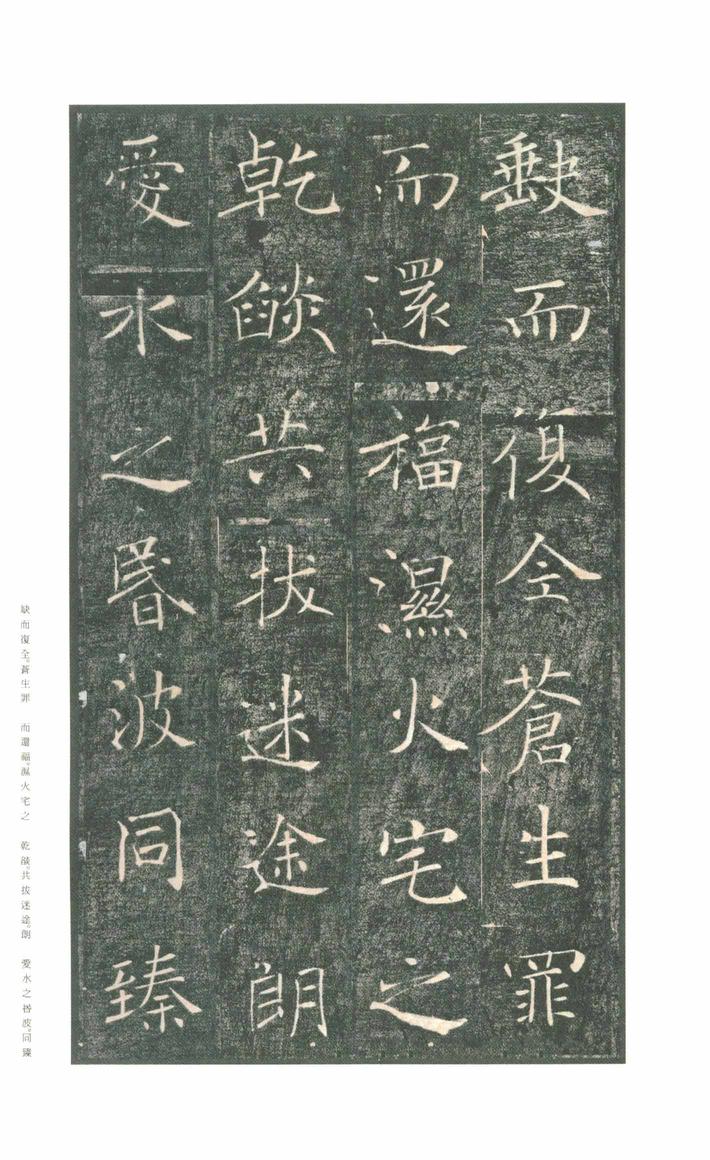 缺而復全蒼生罪
而還福濕火宅之
乾燄共拔迷途朗
愛水之昬波同臻
缺而復全。蒼生罪 而還福。濕火宅之 乾燄。共拔迷途。朗 愛水之昏波。同臻